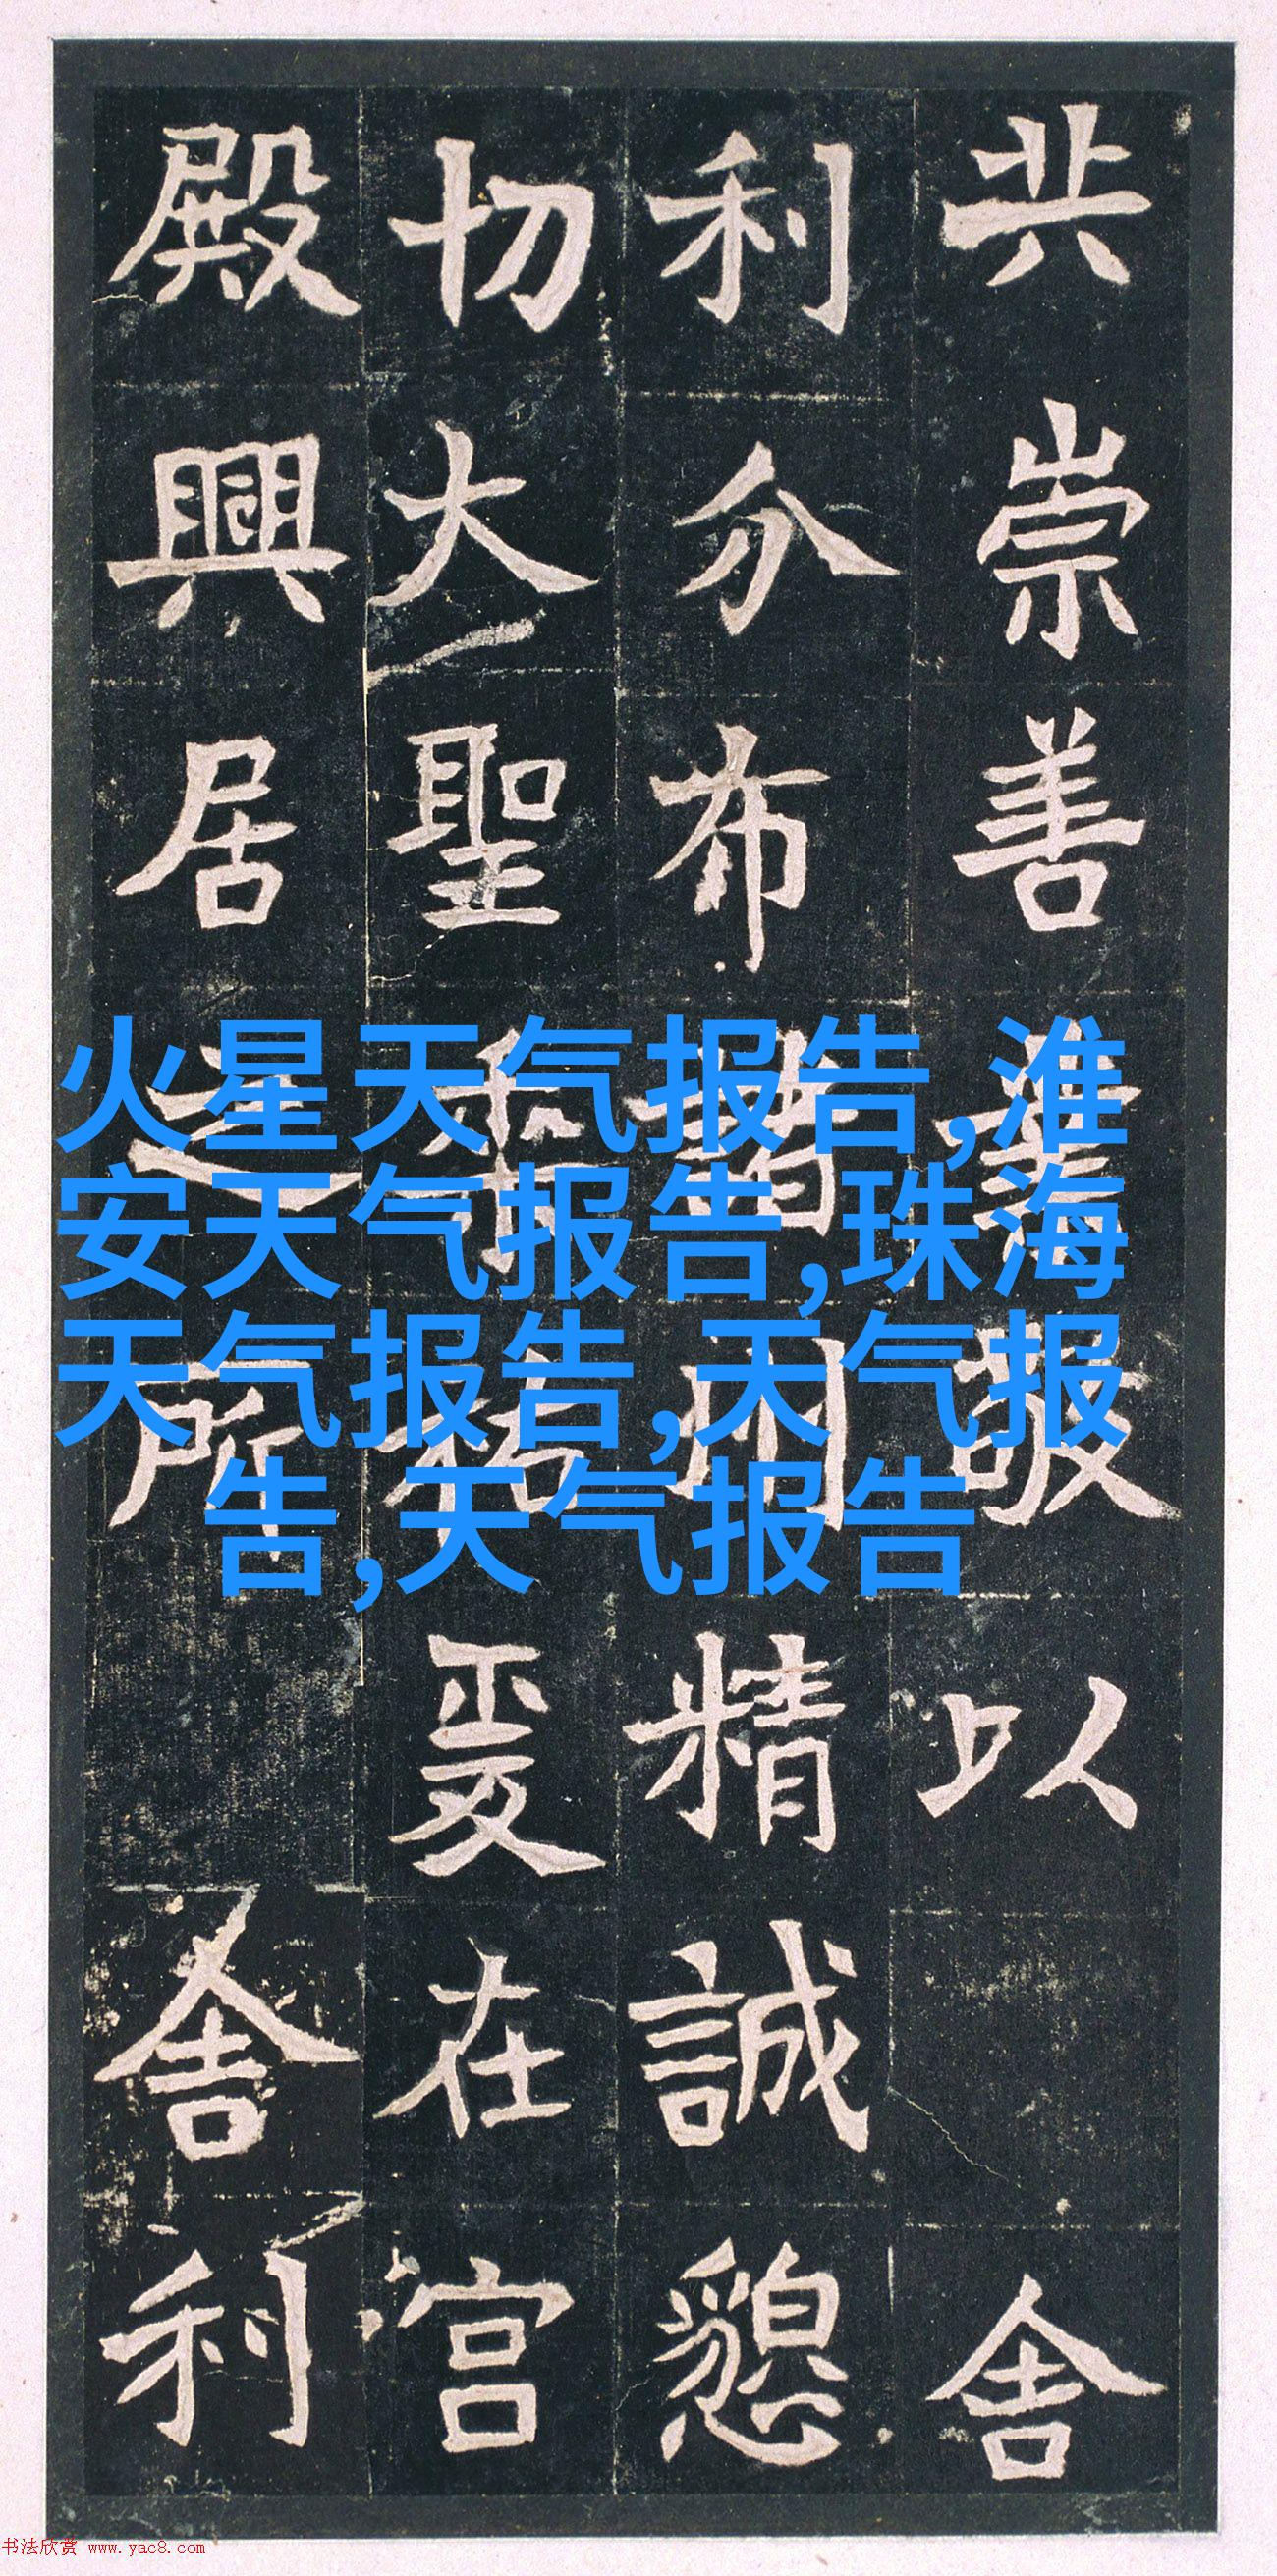 共崇善業敬以舍
利分布諸州精誠懇
切大聖垂祐爰在宮
殿興居之所舍利
火星天气报告,淮
安天气报告,珠海
天气报告,天气报
告,天气报告
书法欣赏 www.yac8.com